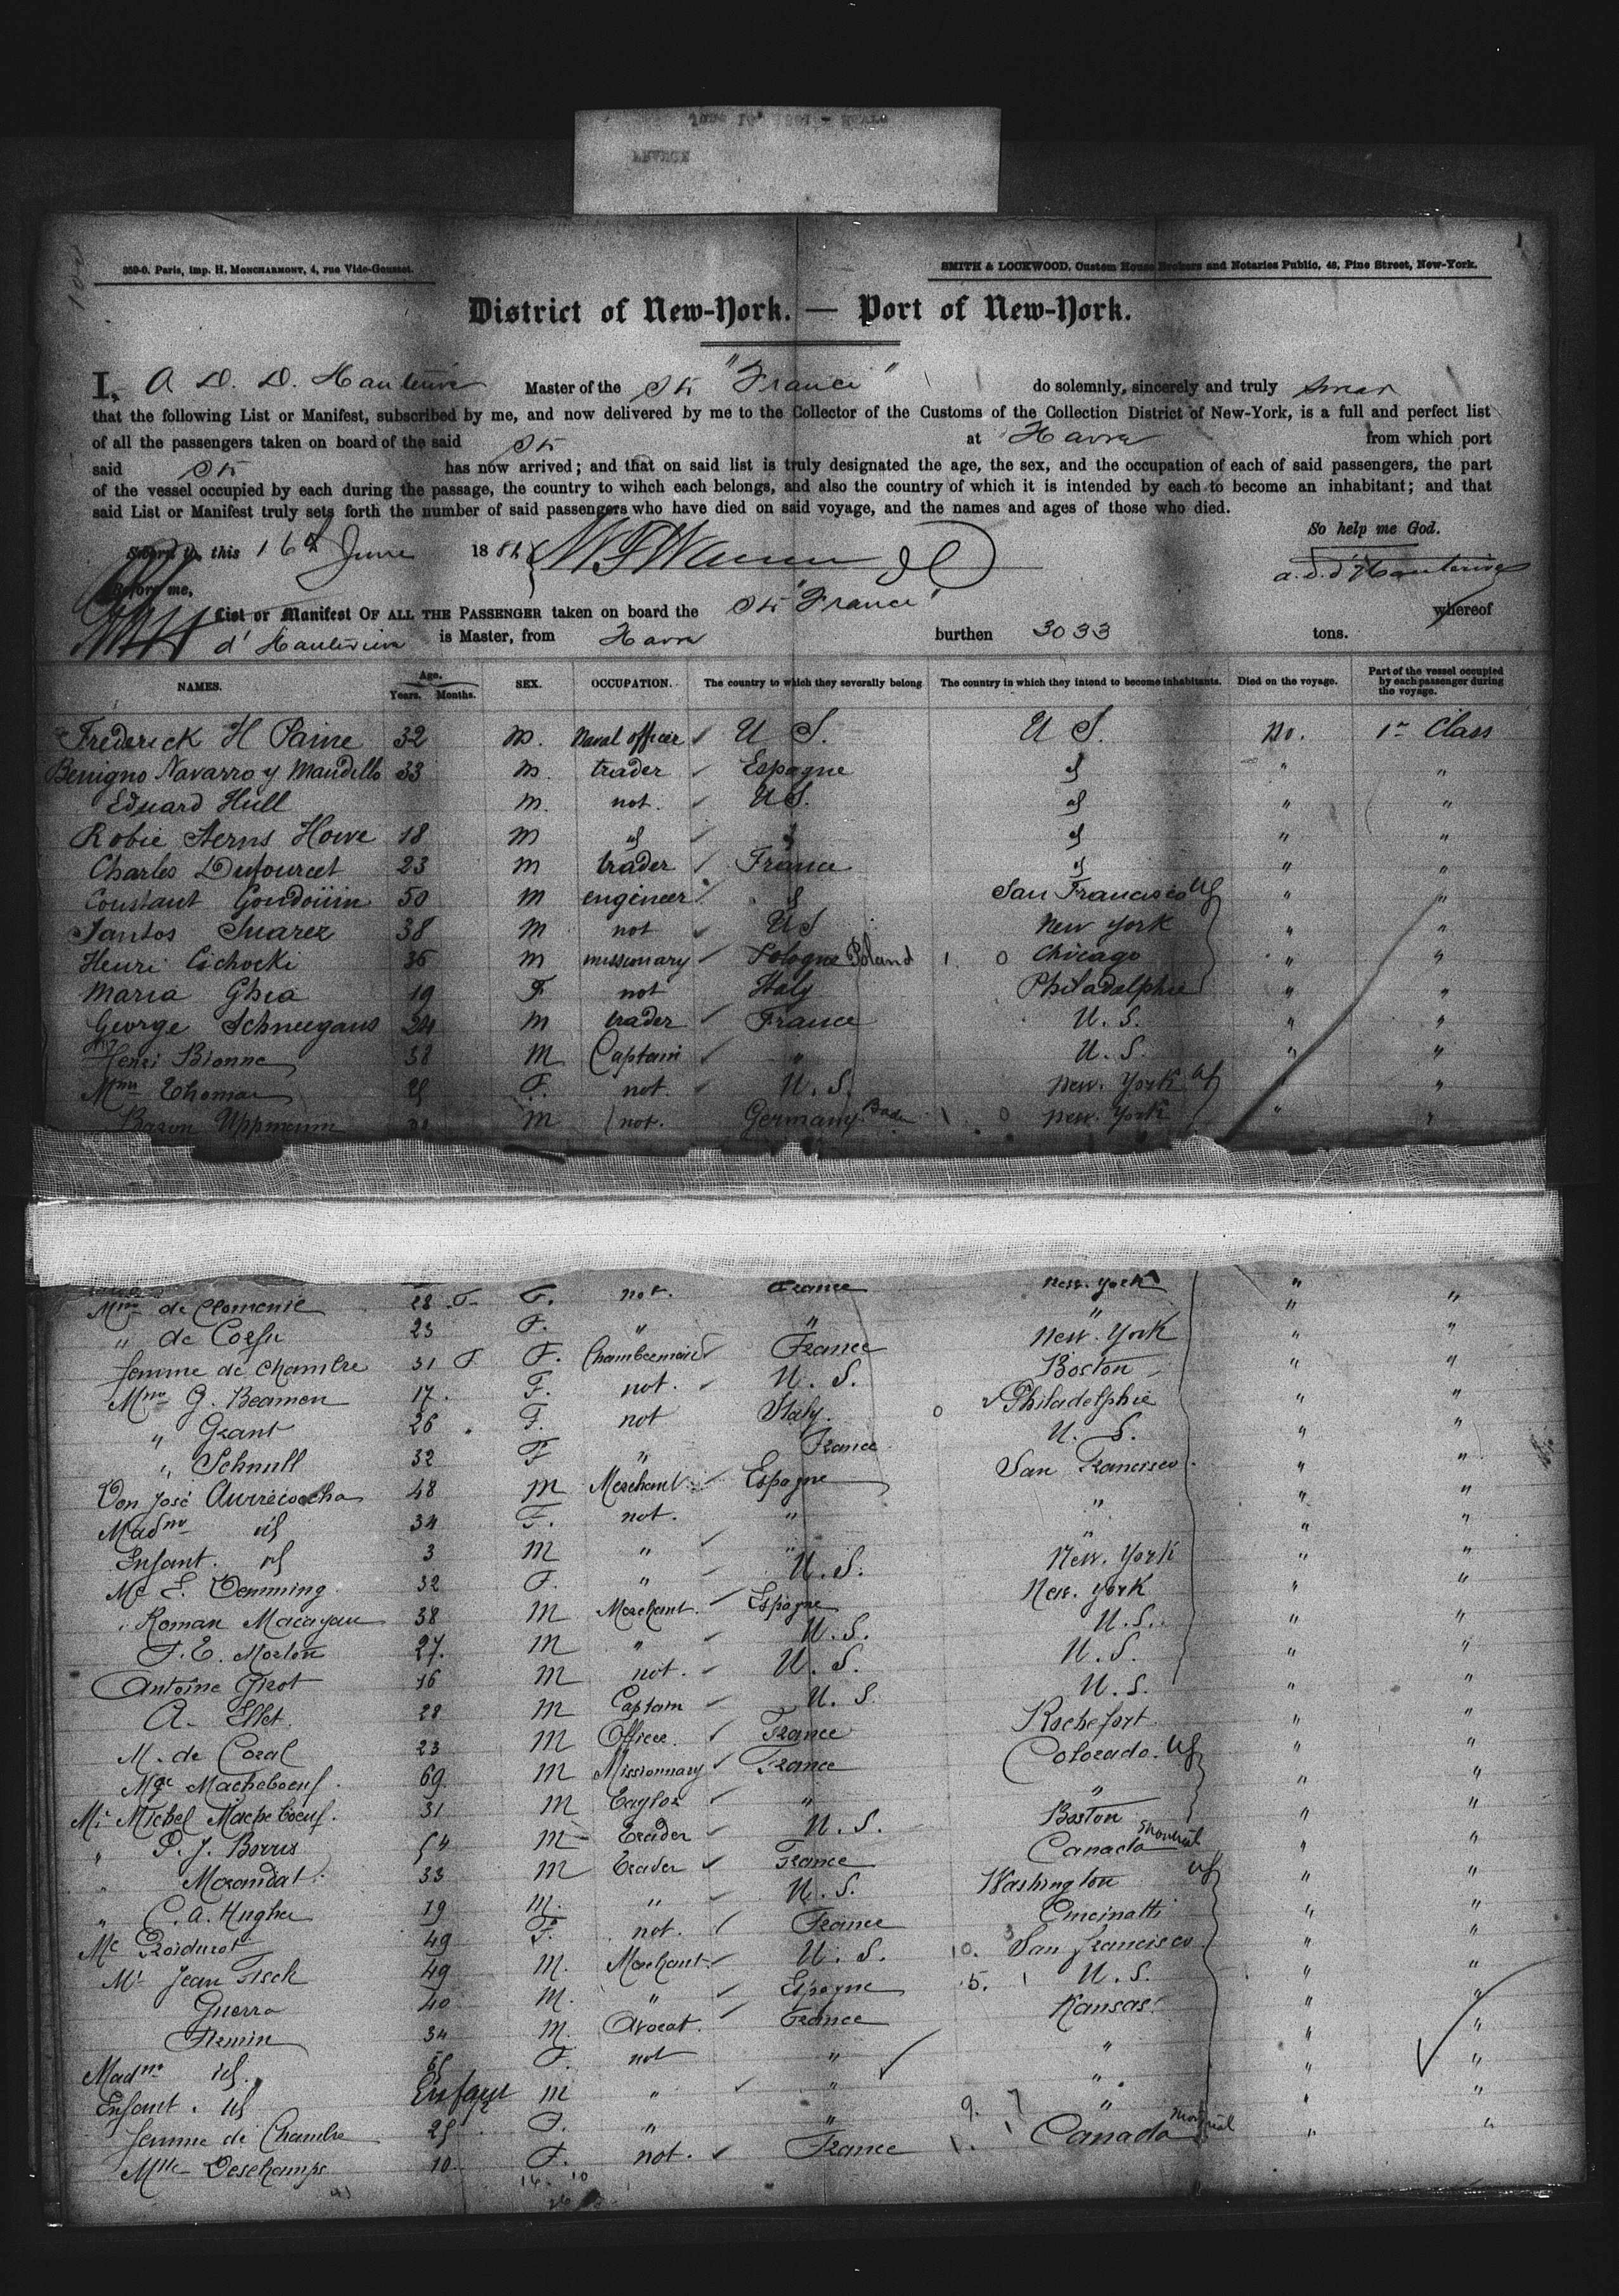 359-0. Paris, imp. H. MONCHARMONT, 4, rue Vide-Gousset.
SMITH & LOCKWOOD, Custom House Brokers and Notaries Public, 46, Pine Street, New-York.
District of New-York. — Port of New-York.
I, A D. D. Hauterive Master of the Str "France" do solemnly, sincerely and truly swear
that the following List or Manifest, subscribed by me, and now delivered by me to the Collector of the Customs of the Collection District of New-York, is a full and perfect list
of all the passengers taken on board of the said Str at Havre from which port
said Str has now arrived; and that on said list is truly designated the age, the sex, and the occupation of each of said passengers, the part
of the vessel occupied by each during the passage, the country to wihch each belongs, and also the country of which it is intended by each to become an inhabitant; and that
said List or Manifest truly sets forth the number of said passengers who have died on said voyage, and the names and ages of those who died.
So help me God.
Sworn to, this 16th June 188
a. d. d'Hauterive
Before me,
List or Manifest OF ALL THE PASSENGER taken on board the Str "France" whereof
d'Hauterive is Master, from Havre burthen 3033 tons.
NAMES. Age. Years. Months. SEX. OCCUPATION. The country to which they severally belong The country in which they intend to become inhabitants. Died on the voyage. Part of the vessel occupied by each passenger during the voyage.
Frederick H Paine 32 m. Naval officer U S. U S. No. 1re Class
Benigno Navarro y Maudillo 33 m. trader Espagne id " "
Eduard Hull m. not. US. id " "
Robie Sterns Howe 18 m id id id " "
Charles Dufourcet 23 m trader France id " "
Constant Goudouin 50 m engineer id San Francisco US " "
Santos Suarez 38 m not US New York " "
Henri Cichocki 36 m missionary Pologne Poland 1 0 Chicago " "
Maria Ghia 19 F not Italy Philadelphie " "
George Schneegans 24 m trader France U. S. " "
Henri Bionne 38 M Captain " U. S. " "
Mme Thomas F. not. U. S. New. York US "
Baron Uppmann m not. Germany Bade 1 0 New. York " "
Mme de Clomenie 28 F. not. France New. York " "
" de Corsu 23 F. " " " " "
femme de chambre 31 F. Chambermaid France New. York " "
Mme G. Beamen 17. F. not. U. S. Boston " "
" Grant 26 F. not Italy. 0 Philadelphie " "
" Schnull 32 F " France U. S. " "
Don José Aurrecoecha 48 m Merchant Espagne San Francisco. " "
Madme id 34 F. not. " " " "
Enfant. id 3 M " " " " "
Me E. Demming. 32 F. " U. S. New. York " "
Roman Macayau 38 M Merchant. Espagne New. York " "
F. E. Morton 27. M " U. S. U. S. " "
Antoine Girot 16 M not. U. S. U. S. " "
A. Ellet. 28 M Captain U. S. U. S. " "
M. de Coral 23 M Officer. France Rochefort " "
Mgr Macheboeuf. 69 M Missionnary France Colorado. US " "
Mr Michel Macheboeuf. 31 M Taylor " " " "
" P. J. Borris 54 M Trader U. S. Boston " "
" Morandat. 33 M Trader France Canada Montreal " "
" C. A. Hughes 19 M. " U. S. Washington US " "
Me Roidurot 49 F. not. France Cincinatti " "
Mr Jean Fisch 49 M. Merchant. U. S. 10. 3 San francisco " "
Guerra 40 M. " Espagne 5. 1 U. S. " "
Firmin 34 M. Avocat. France Kansas. " "
Madme id. F. not " " " "
Enfant. id Enfant M " " " " "
femme de Chambre 25 F. " " 9. 7 " " "
Mlle Deschamps 10 F. not. France 1. 1 Canada Montreal " "